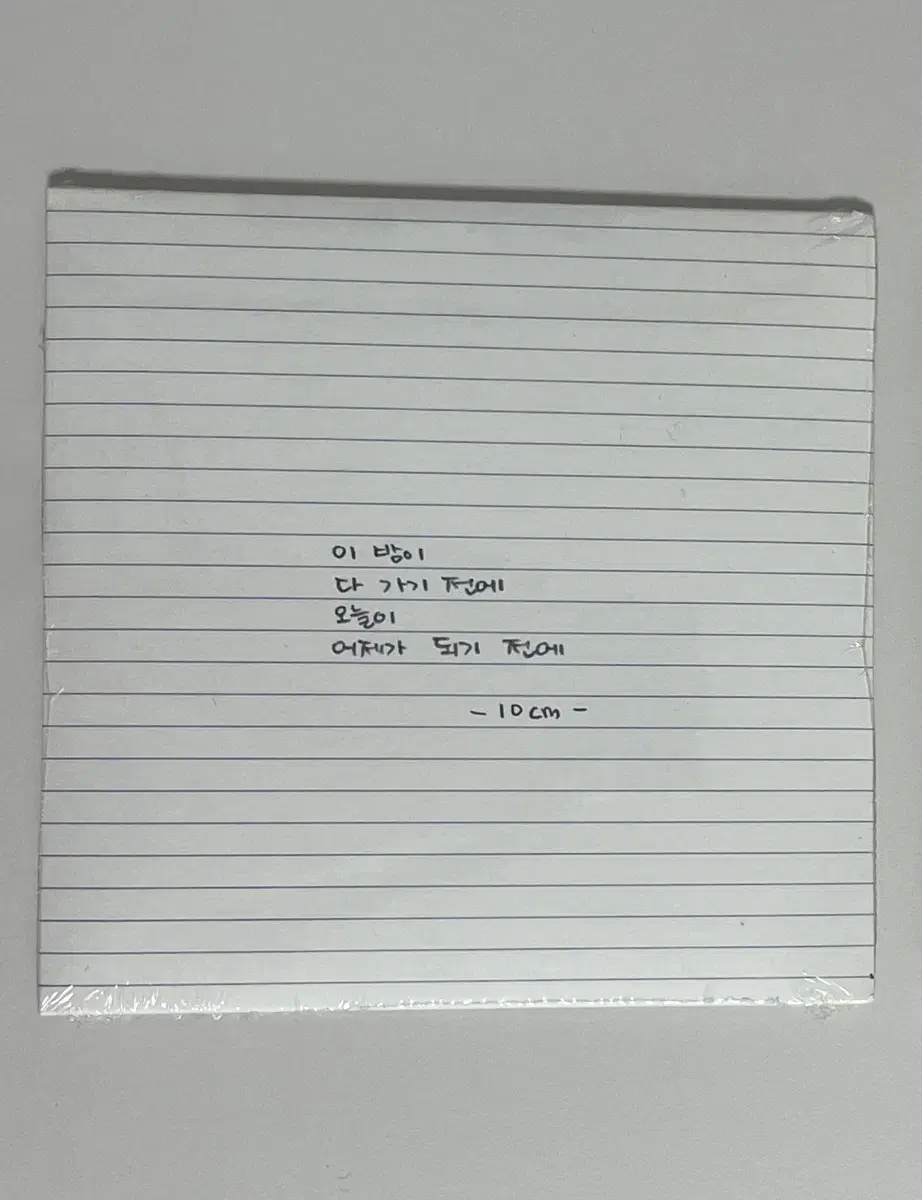 이 밤이
다 가기 전에
오늘이
어제가 되기 전에
- 10cm -